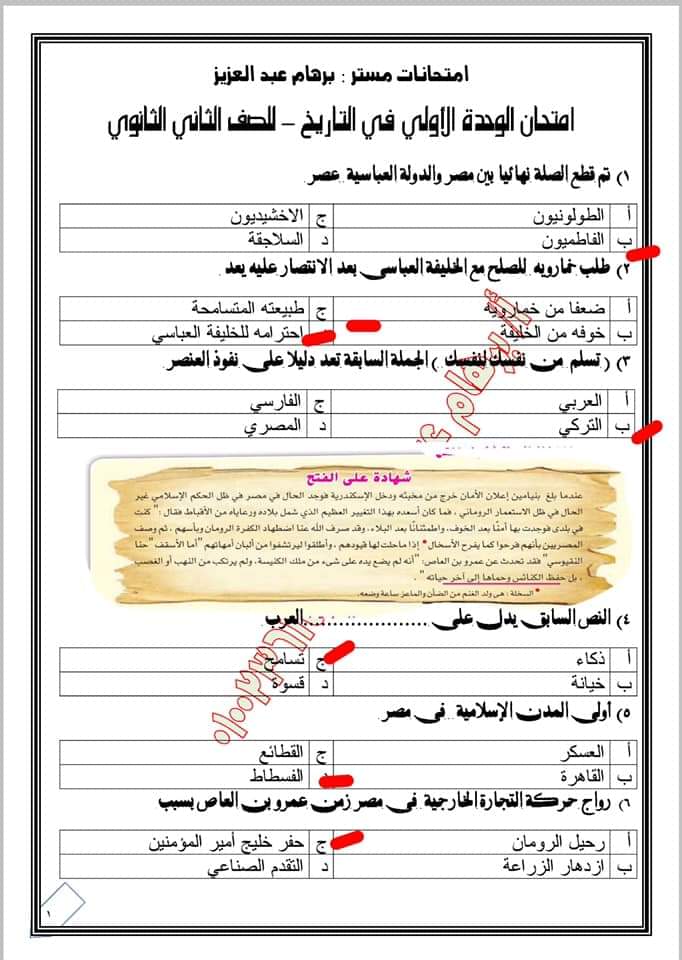 امتحانات مستر : برهام عبد العزيز
امتحان الوحدة الأولي في التاريخ – للصف الثاني الثانوي
١) تم قطع الصلة نهائيا بين مصر والدولة العباسية عصر
أ الطولونيون ج الاخشيديون
ب الفاطميون د السلاجقة
٢) طلب خمارويه للصلح مع الخليفة العباسى بعد الانتصار عليه يعد
أ ضعفا من خمارويه ج طبيعته المتسامحة
ب خوفه من الخليفة د احترامه للخليفة العباسي
٣) ( تسلم من نفسك لنفسك ) الجملة السابقة تعد دليلا على نفوذ العنصر
أ العربي ج الفارسي
ب التركي د المصري
شهادة على الفتح
عندما بلغ بنيامين إعلان الأمان خرج من مخبئه ودخل الإسكندرية فوجد الحال في مصر في ظل الحكم الإسلامي غير
الحال في ظل الاستعمار الروماني ، فما كان أسعده بهذا التغيير العظيم الذي شمل بلاده ورعاياه من الأقباط فقال : "كنت
في بلدى فوجدت بها أمنًا بعد الخوف، واطمئنانًا بعد البلاء، وقد صرف الله عنا اضطهاد الكفرة الرومان وبأسهم ، ثم وصف
المصريين بأنهم فرحوا كما يفرح الأسخال * إذا ماحلت لها قيودهم ، وأطلقوا ليرتشفوا من ألبان أمهاتهم "أما الأسقف "حنا
النقيوسي" فقد تحدث عن عمرو بن العاص: "أنه لم يضع يده على شىء من ملك الكنيسة، ولم يرتكب من النهب أو الغصب
، بل حفظ الكنائس وحماها إلى آخر حياته " .
* السخلة : هى ولد الغنم من الضأن والماعز ساعة وضعه.
٤) النص السابق يدل على .....................العرب
أ ذكاء ج تسامح
ب خيانة د قسوة
٥) أولى المدن الإسلامية فى مصر
أ العسكر ج القطائع
ب القاهرة د الفسطاط
٦) رواج حركة التجارة الخارجية فى مصر زمن عمرو بن العاص بسبب
أ رحيل الرومان ج حفر خليج أمير المؤمنين
ب ازدهار الزراعة د التقدم الصناعي
١